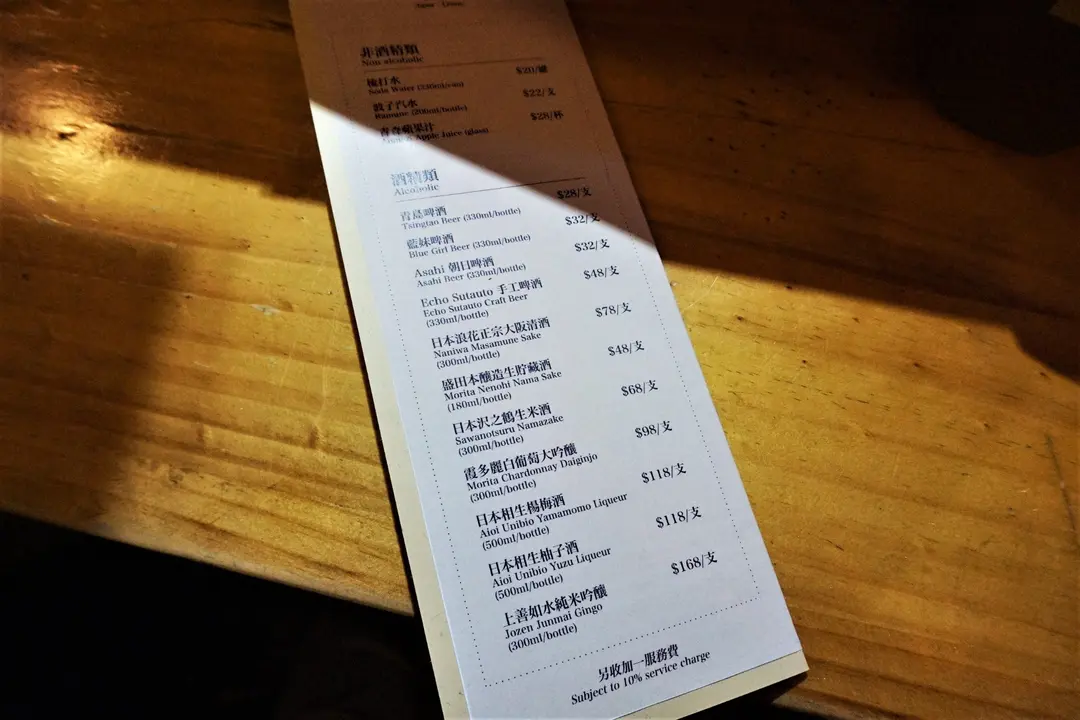 非酒精類
Non alcoholic
梳打水 $20/罐
Soda Water (330ml/can)
波子汽水 $22/支
Ramune (200ml/bottle)
青森蘋果汁 $28/杯
Apple Juice (glass)
酒精類
Alcoholic
青島啤酒 $28/支
Tsingtao Beer (330ml/bottle)
藍妹啤酒 $32/支
Blue Girl Beer (330ml/bottle)
Asahi 朝日啤酒 $32/支
Asahi Beer (330ml/bottle)
Echo Sutauto 手工啤酒 $48/支
Echo Sutauto Craft Beer
(330ml/bottle)
日本浪花正宗大阪清酒 $78/支
Naniwa Masamune Sake
(300ml/bottle)
盛田本釀造生貯藏酒 $48/支
Morita Nenohi Nama Sake
(180ml/bottle)
日本沢之鶴生米酒 $68/支
Sawanotsuru Namazake
(300ml/bottle)
霞多麗白葡萄大吟釀 $98/支
Morita Chardonnay Daiginjo
(300ml/bottle)
日本相生楊梅酒 $118/支
Aioi Unibio Yamamomo Liqueur
(500ml/bottle)
日本相生柚子酒 $118/支
Aioi Unibio Yuzu Liqueur
(500ml/bottle)
上善如水純米吟釀 $168/支
Jozen Junmai Gingo
(300ml/bottle)
另收加一服務費
Subject to 10% service charge